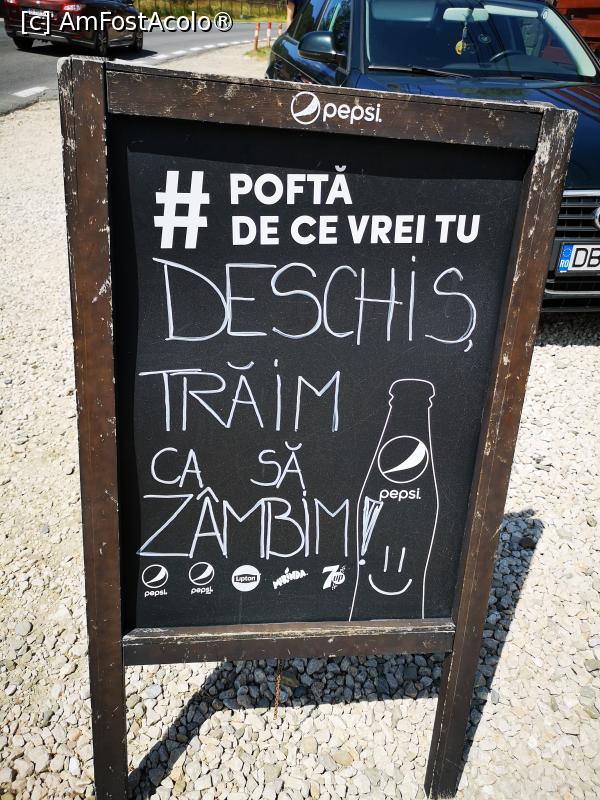 [c] AmFostAcolo®
pepsi.
# POFTĂ
DE CE VREI TU
DESCHIS,
TRĂIM
CA SĂ
ZÂMBIM!
pepsi.
pepsi. pepsi. Lipton MIRINDA 7UP
RO DB